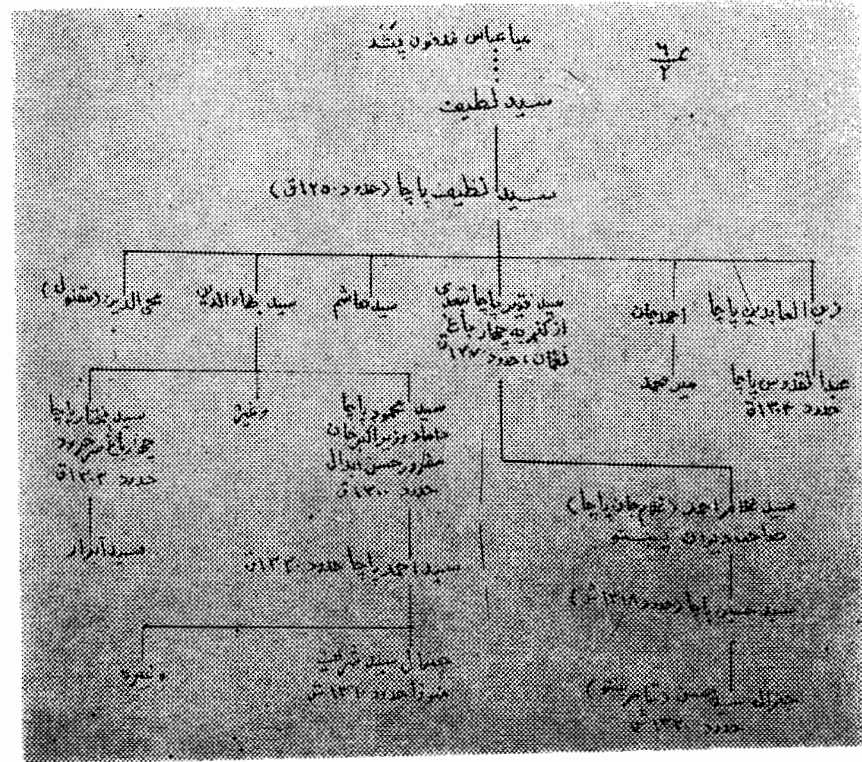 میا عباس مدفون پشد
۲/۶
سید لطیف
سید لطیف پاچا (حدود ۱۲۵۰ق)
زین العابدین پاچا
احمد جان
سید فقیر پاچا
از کنر به چهارباغ
لغمان، حدود ۱۲۷۰ق
سید هاشم
سید بهاء الدین
محی الدین (مقتول)
عبدالقدوس پاچا
حدود ۱۳۰۴ق
میر صمد
سید محمود پاچا
داماد وزیر اکبر خان
مفرور حسن ابدال
حدود ۱۳۰۰ق
وغیره
سید مختار پاچا
چهارباغ سرخرود
حدود ۱۳۰۲ق
سید غلام احمد (غلام جان پاچا)
صاحب دیوان پښتو
سید احمد پاچا حدود ۱۳۲۰ق
سید ابرار
سید حسین پاچا (حدود ۱۳۱۸ش)
جنرال سید شریف
حدود ۱۳۱۰ش
وغیره
جنرال سید حسن
حدود